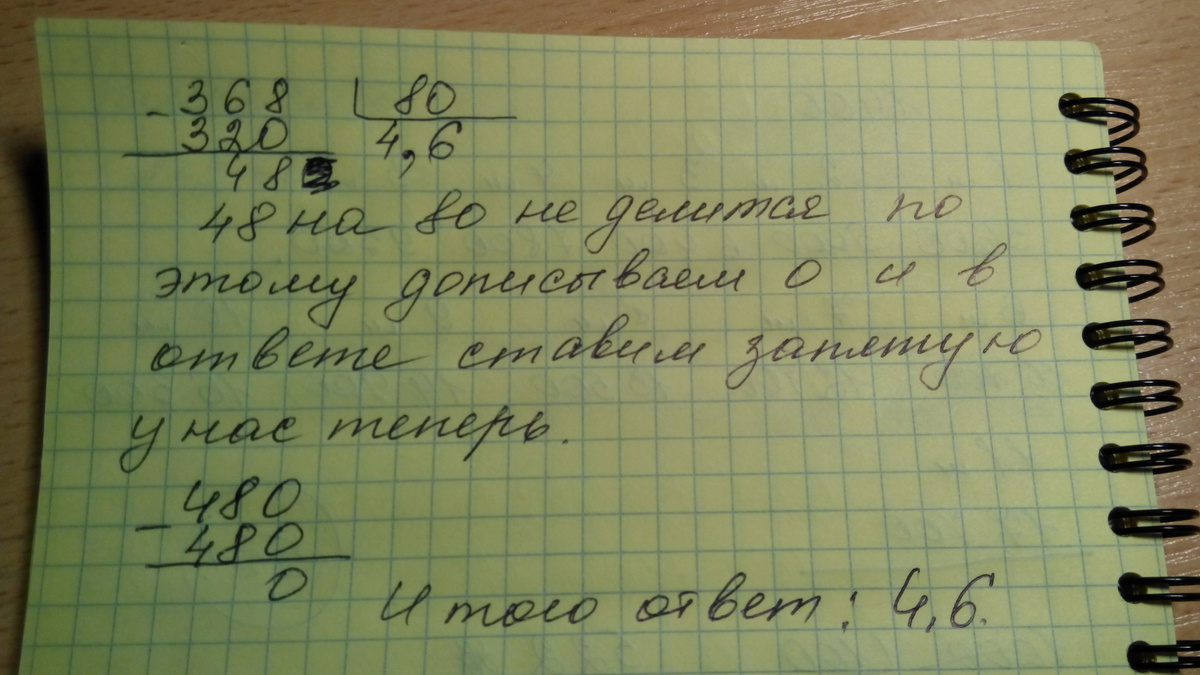 - 368 | 80
320 4,6
48
48 на 80 не делится по
этому дописываем 0 и в
ответе ставим запятую
у нас теперь.
- 480
480
0
Итого ответ: 4,6.